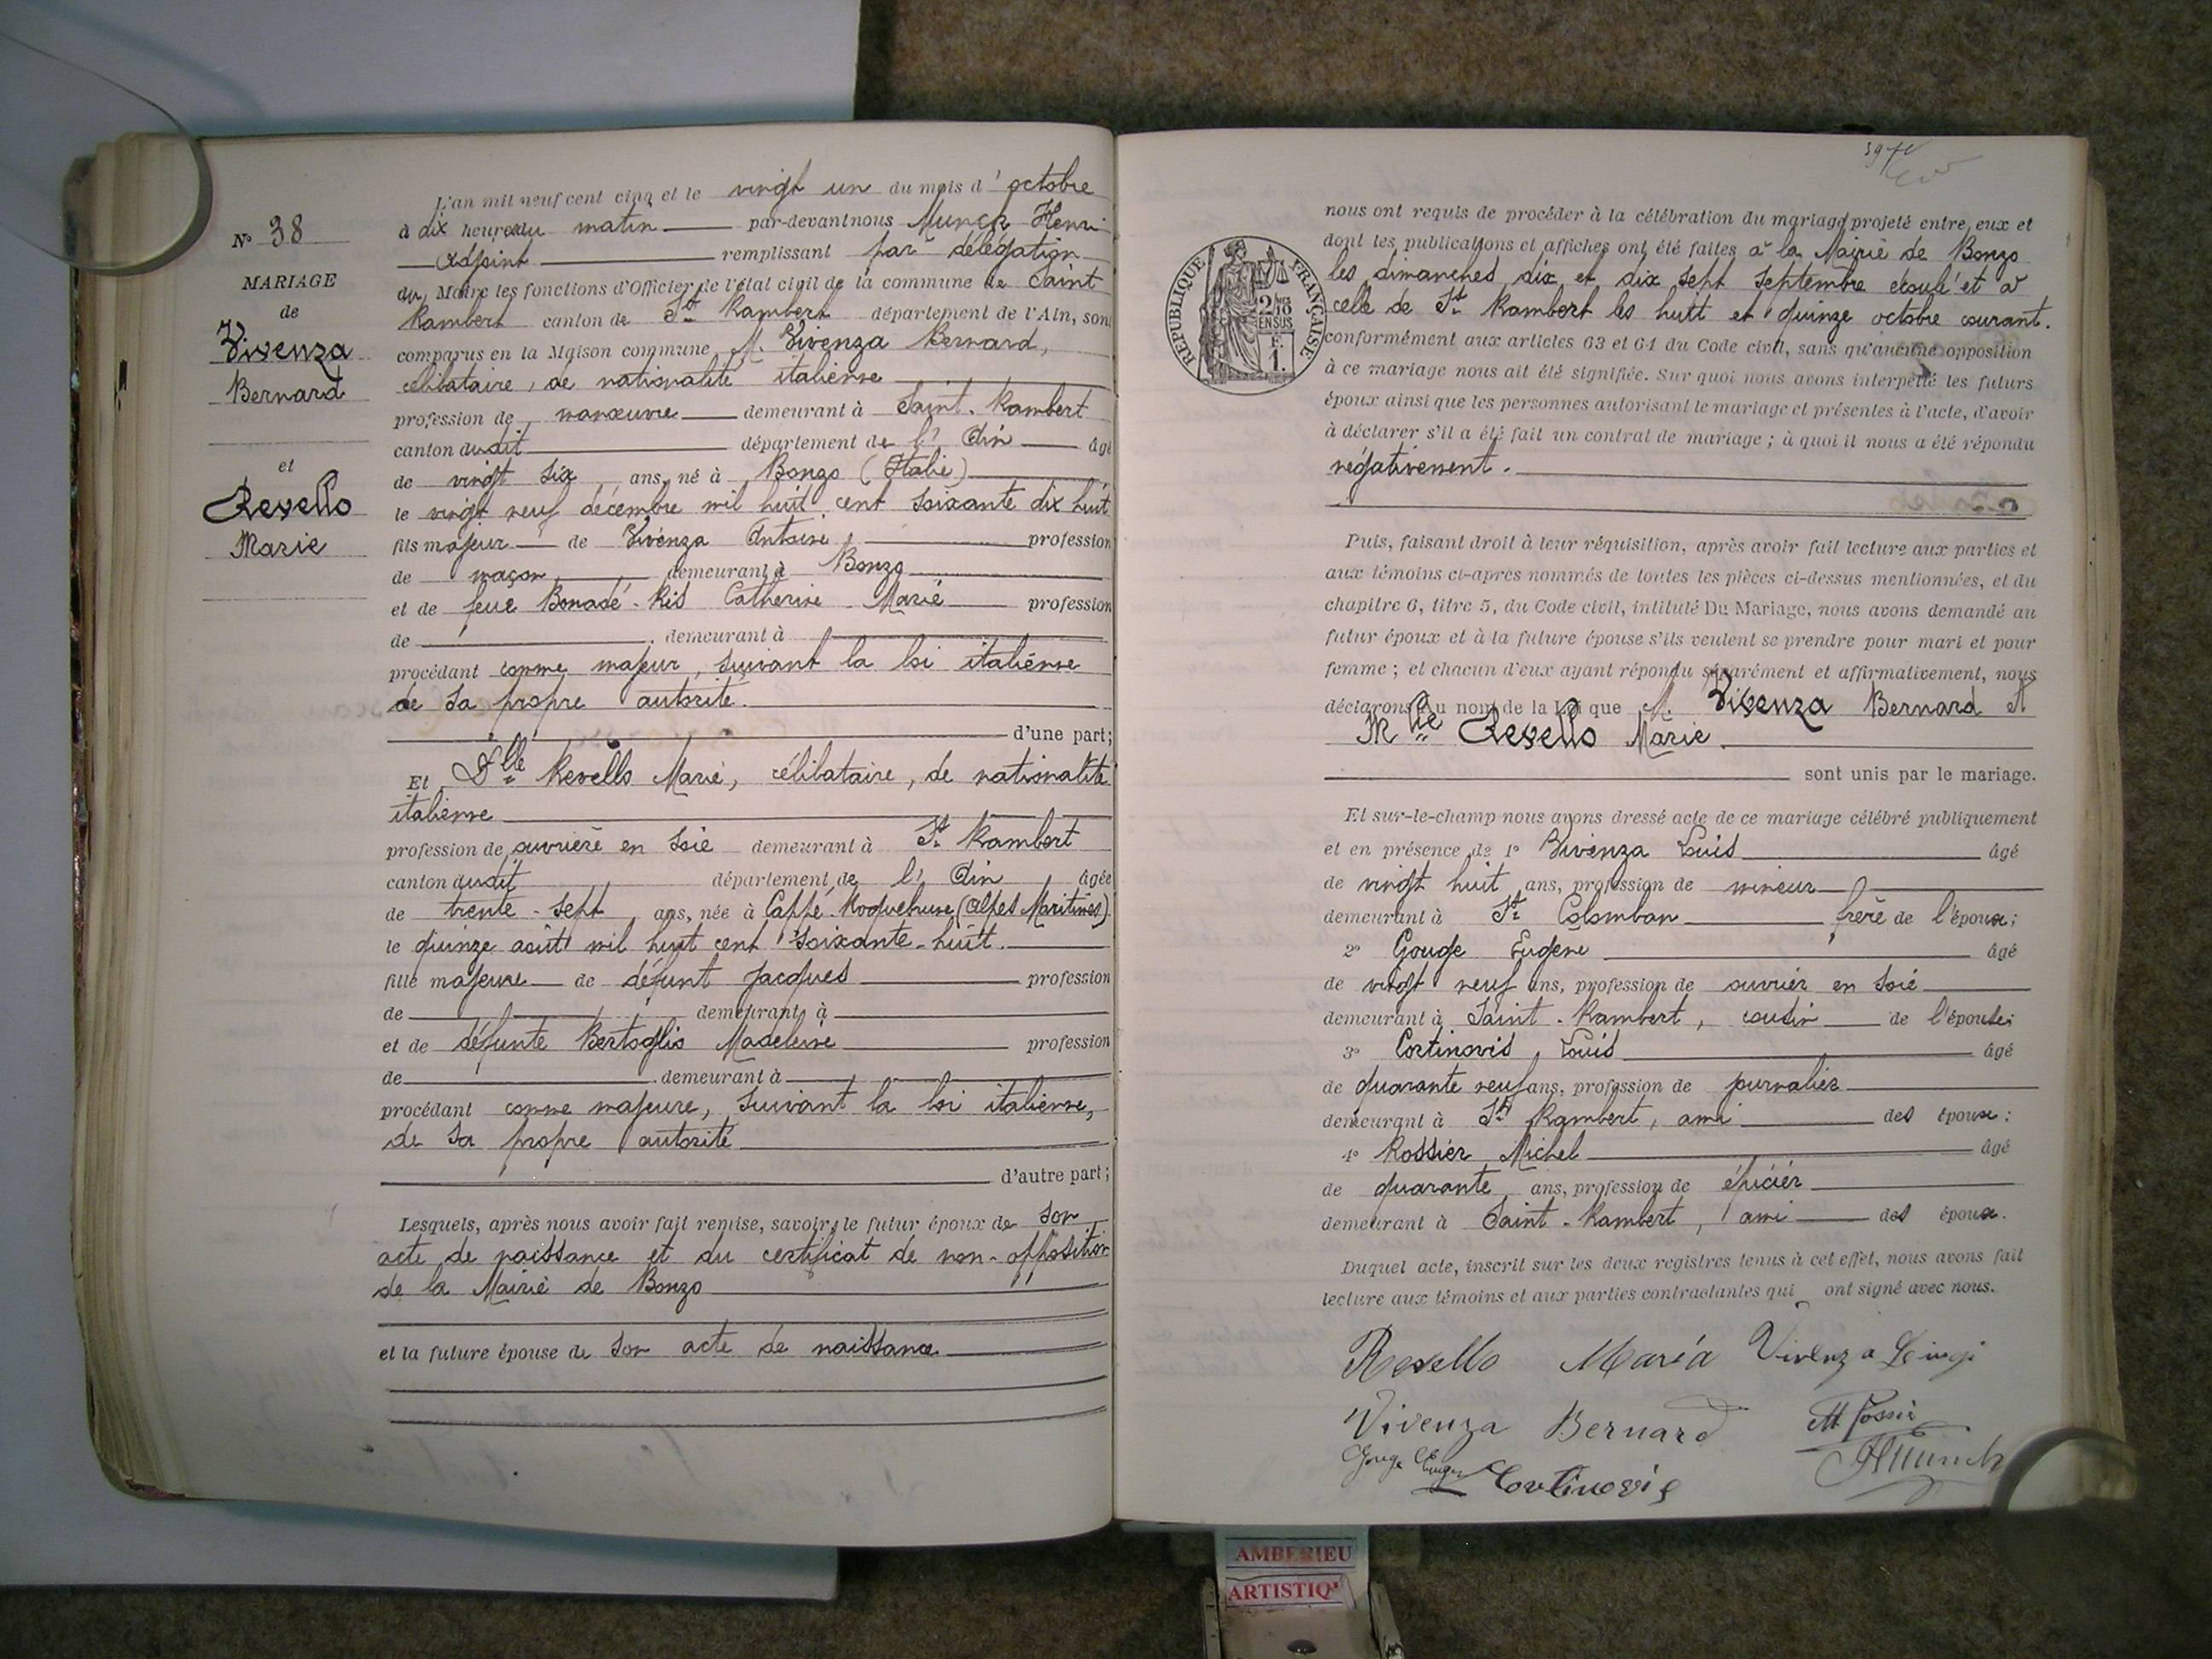 N° 38
MARIAGE
de
Vivenza
Bernard
et
Revello
Marie
L'an mil neuf cent cinq et le vingt un du mois d'octobre
à dix heures du matin par-devant nous Munch Henri
Adjoint remplissant par délégation
du Maire les fonctions d'Officier de l'état civil de la commune de Saint
Rambert canton de St Rambert département de l'Ain, sont
comparus en la Maison commune M. Vivenza Bernard,
célibataire, de nationalité italienne
profession de manœuvre demeurant à Saint-Rambert
canton dudit département de l'Ain âgé
de vingt six ans, né à Bonzo (Italie)
le vingt neuf décembre mil huit cent soixante dix huit
fils majeur de Vivenza Antoine, profession
de maçon demeurant à Bonzo
et de feue Bonadé-Ris Catherine Marie profession
de demeurant à
procédant comme majeur, suivant la loi italienne
de sa propre autorité.
d'une part;
Et Dlle Revello Marie, célibataire, de nationalité
italienne
profession de ouvrière en soie demeurant à St Rambert
canton dudit département de l'Ain âgée
de trente-sept ans, née à Cappé-Roquebrune (Alpes Maritimes)
le quinze août mil huit cent soixante-huit.
fille majeure de défunt Jacques profession
de demeurant à
et de défunte Bertoglio Madeleine profession
de demeurant à
procédant comme majeure, suivant la loi italienne,
de sa propre autorité
d'autre part;
Lesquels, après nous avoir fait remise, savoir, le futur époux de son
acte de naissance et du certificat de non-opposition
de la Mairie de Bonzo
et la future épouse de son acte de naissance
RÉPUBLIQUE FRANÇAISE
2/10
EN SUS
F.
1.
nous ont requis de procéder à la célébration du mariage projeté entre eux et
dont les publications et affiches ont été faites à la Mairie de Bonzo
les dimanches dix et dix sept septembre écoulé et à
celle de St Rambert les huit et quinze octobre courant.
conformément aux articles 63 et 64 du Code civil, sans qu'aucune opposition
à ce mariage nous ait été signifiée. Sur quoi nous avons interpellé les futurs
époux ainsi que les personnes autorisant le mariage et présentes à l'acte, d'avoir
à déclarer s'il a été fait un contrat de mariage; à quoi il nous a été répondu
négativement.
Puis, faisant droit à leur réquisition, après avoir fait lecture aux parties et
aux témoins ci-après nommés de toutes les pièces ci-dessus mentionnées, et du
chapitre 6, titre 5, du Code civil, intitulé Du Mariage, nous avons demandé au
futur époux et à la future épouse s'ils veulent se prendre pour mari et pour
femme; et chacun d'eux ayant répondu séparément et affirmativement, nous
déclarons au nom de la loi que M. Vivenza Bernard et
Mlle Revello Marie
sont unis par le mariage.
Et sur-le-champ nous avons dressé acte de ce mariage célébré publiquement
et en présence de 1° Vivenza Louis âgé
de vingt huit ans, profession de mineur
demeurant à St Colomban frère de l'époux;
2° Gouge Eugène âgé
de vingt neuf ans, profession de ouvrier en soie
demeurant à Saint-Rambert, cousin de l'épouse;
3° Cortinovis Louis âgé
de quarante neuf ans, profession de journalier
demeurant à St Rambert, ami des époux:
4° Rossier Michel âgé
de quarante ans, profession de épicier
demeurant à Saint-Rambert, ami des époux.
Duquel acte, inscrit sur les deux registres tenus à cet effet, nous avons fait
lecture aux témoins et aux parties contractantes qui ont signé avec nous.
Revello Maria Vivenza Luigi
Vivenza Bernard M Rossié
Gouge Eugène Cortinovis HMunch
AMBERIEU
ARTISTIQ'